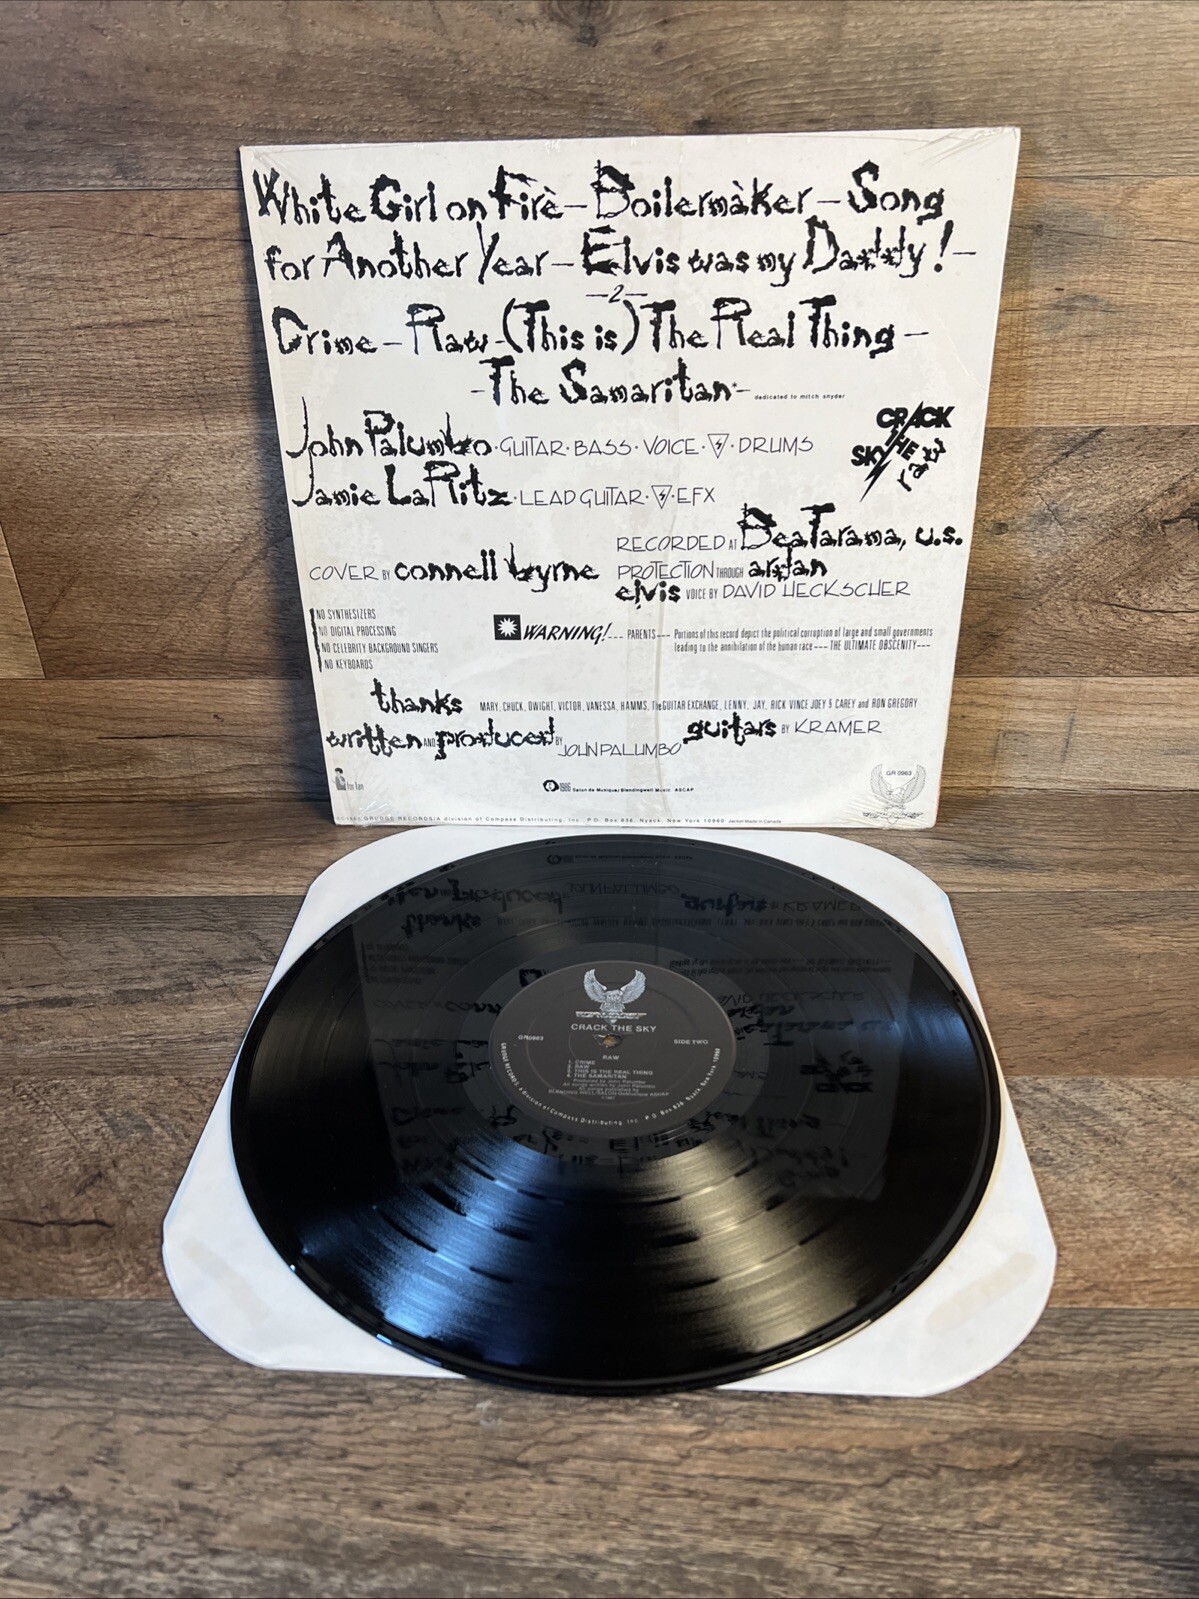 White Girl on Fire – Boilermaker – Song
for Another Year – Elvis was my Daddy! –
–2–
Crime – Raw – (This is) The Real Thing –
– The Samaritan* – dedicated to mitch snyder
CRACK
THE
SKY
raw
John Palumbo · GUITAR · BASS · VOICE · DRUMS
Jamie LaRitz · LEAD GUITAR · EFX
RECORDED AT BeaTarama, u.s.
COVER BY connell byrne
PROTECTION THROUGH ardan
elvis VOICE BY DAVID HECKSCHER
NO SYNTHESIZERS
NO DIGITAL PROCESSING
NO CELEBRITY BACKGROUND SINGERS
NO KEYBOARDS
WARNING! --- PARENTS --- Portions of this record depict the political corruption of large and small governments
leading to the annihilation of the human race --- THE ULTIMATE OBSCENITY ---
thanks MARY, CHUCK, DWIGHT, VICTOR, VANESSA, HAMMS, The GUITAR EXCHANGE, LENNY, JAY, RICK VINCE JOEY S CAREY and RON GREGORY
written AND produced BY JOHN PALUMBO
guitars BY KRAMER
for fan
℗ 1986 Salon de Musique/Blendingwell Music ASCAP
GR 0963
GRUDGE RECORDS/A division of Compass Distributing, Inc. P.O. Box 836, Nyack, New York 10960 Jacket Made in Canada
CRACK THE SKY
GR0963
SIDE TWO
RAW
1. CRIME
2. RAW
3. THIS IS THE REAL THING
4. THE SAMARITAN
Produced by John Palumbo
All songs written by John Palumbo
All songs published by
GRUDGE RECORDS, A division of Compass Distributing, Inc. P.O. Box 836, Nyack, New York, 10960